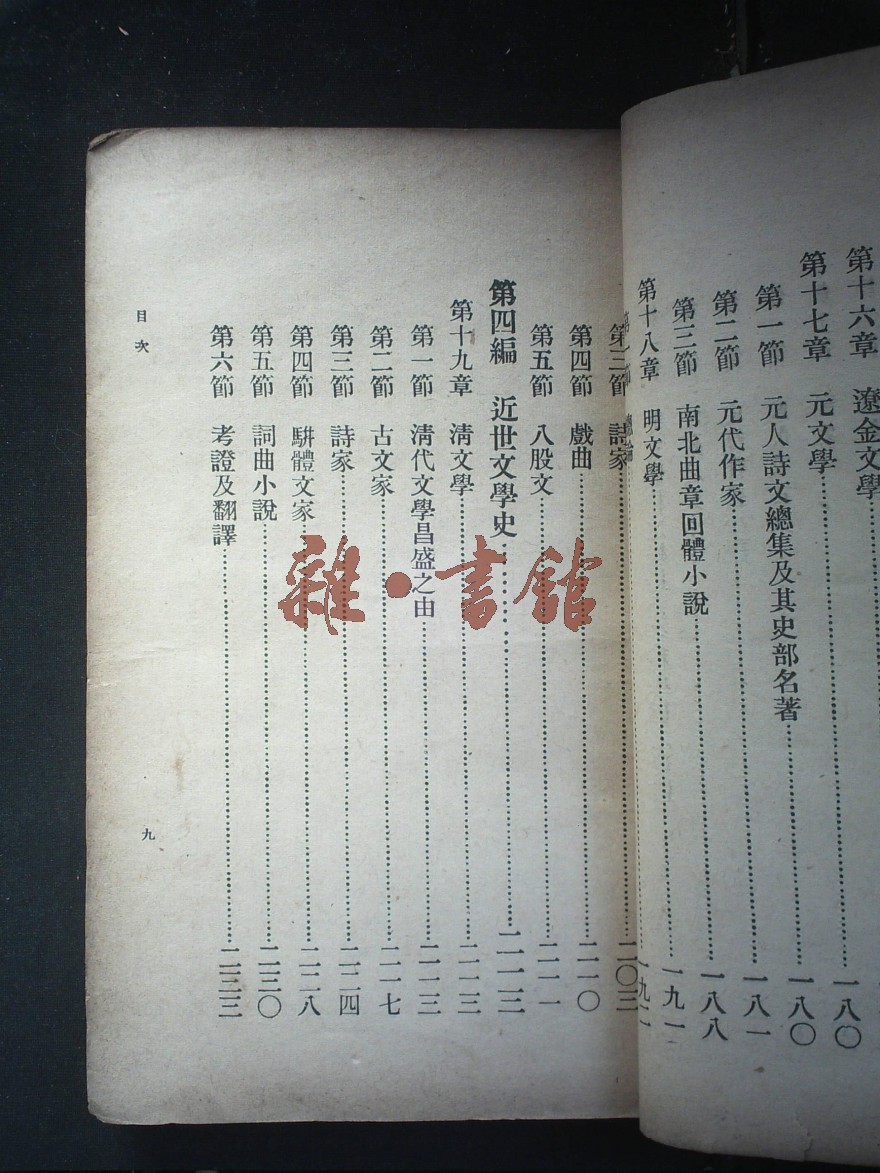 第十六章 遼金文學
第十七章 元文學……一八〇
第一節 元人詩文總集及其史部名著……一八〇
第二節 元代作家……一八一
第三節 南北曲章回體小說……一八八
第十八章 明文學……一九一
第三節 詩家……二〇三
第四節 戲曲……二一〇
第五節 八股文……二一一
第四編 近世文學史……二一三
第十九章 清文學……二一三
第一節 清代文學昌盛之由……二一三
第二節 古文家……二一七
第三節 詩家……二二四
第四節 駢體文家……二二八
第五節 詞曲小說……二三〇
第六節 考證及翻譯……二三三
目次
九
雜·書館